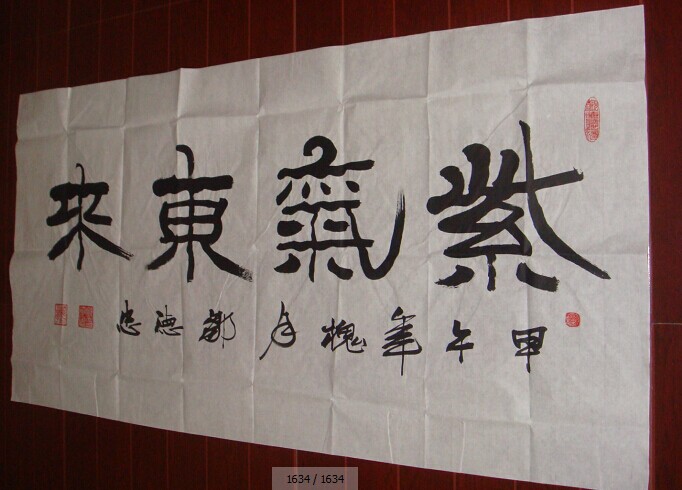 紫氣東來
甲午年槐月鄒德忠
1634 / 1634